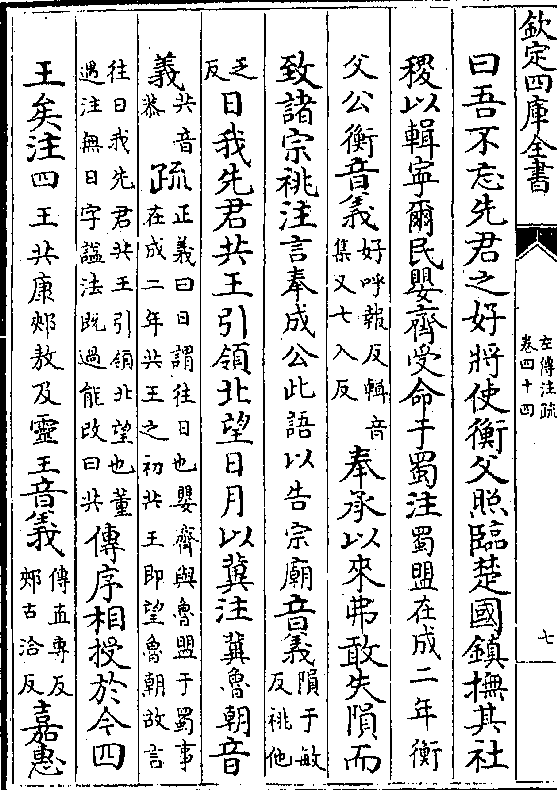 欽定四庫全書
左傳注疏
卷四十四
七
曰吾不忘先君之好將使衡父照臨楚國鎮撫其社
稷以輯寧爾民嬰齊受命于蜀注蜀盟在成二年衡
父公衡音義好呼報反輯音集又七入反奉承以來弗敢失隕而
致諸宗祧注言奉成公此語以告宗廟音義隕于敏反祧他
乏反日我先君共王引領北望日月以冀注冀魯朝音
義共音恭疏正義曰日謂往日也嬰齊與魯盟于蜀事在成二年共王之初共王即望魯朝故言
往日我先君共王引領北望也董遇注無日字謚法既過能改曰共傳序相授於今四
王矣注四王共康郟敖及靈王音義傳直專反郟古洽反嘉惠